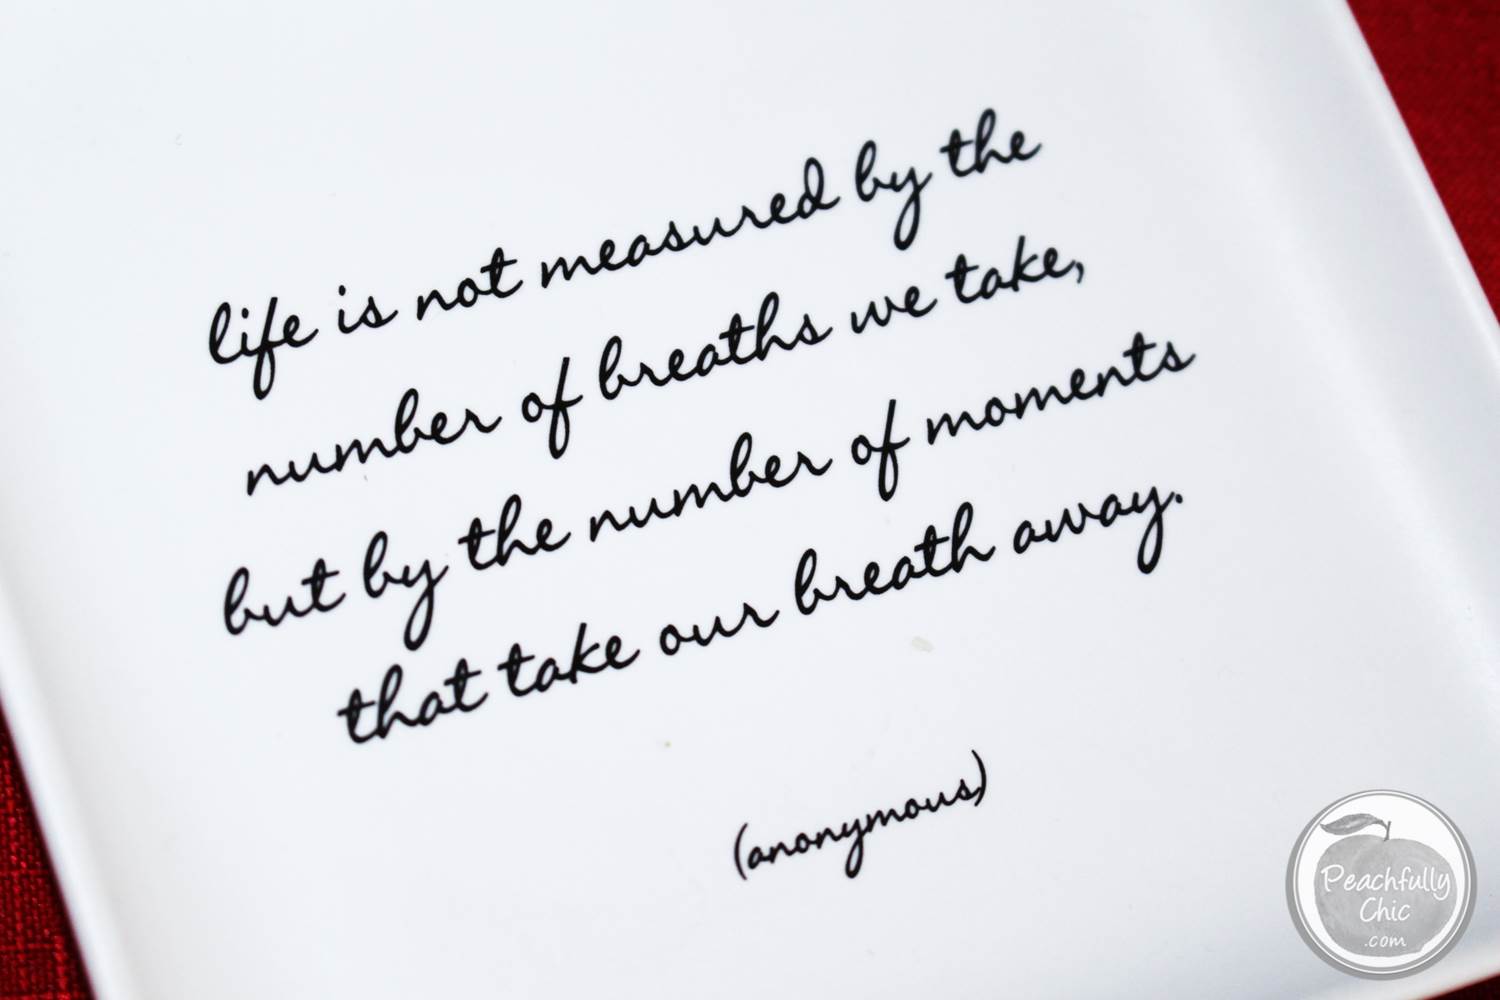 life is not measured by the
number of breaths we take,
but by the number of moments
that take our breath away.
(anonymous)
Peachfully
Chic
.com